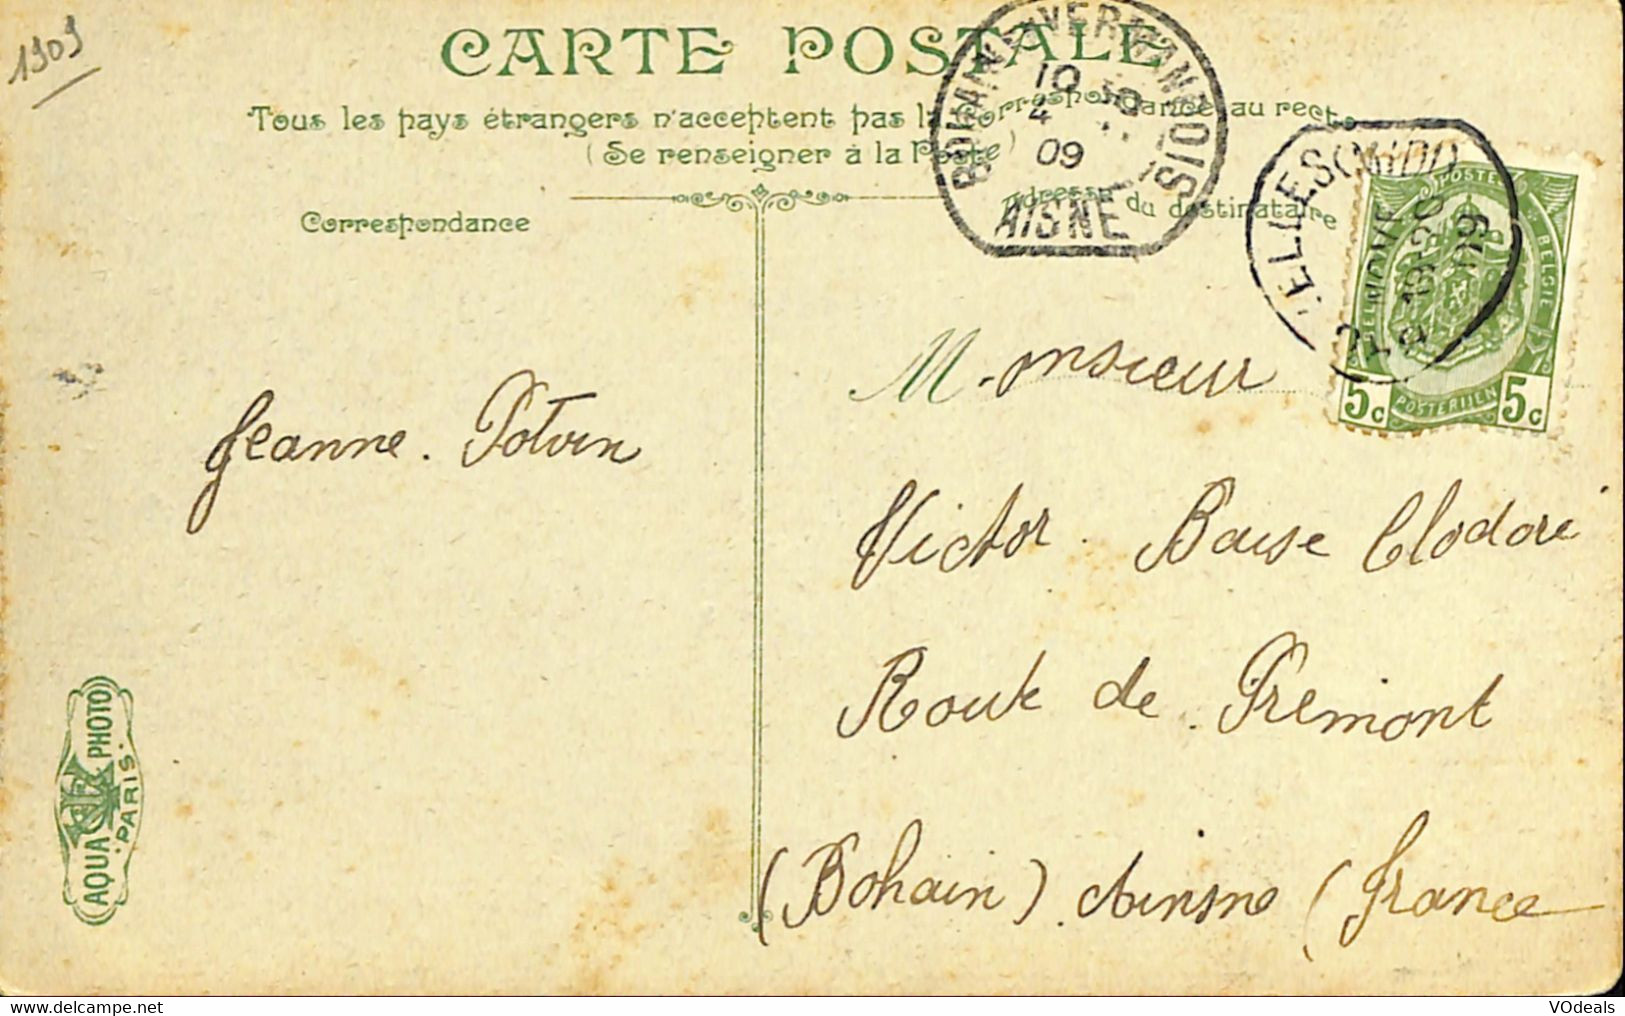 1909
CARTE POSTALE
Tous les pays étrangers n'acceptent pas la Correspondance au recto
(Se renseigner à la Poste)
Correspondance
Adresse du destinataire
BOHAIN-EN-VERMANDOIS
10
4
09
AISNE
POSTES
BELGIQUE
BELGIE
POSTERIJEN
5c 5c
Monsieur
Jeanne. Potvin
Victor. Baise Clodoré
Route de Prémont
(Bohain) Ainsne (france
AQUA PHOTO
PARIS
VOdeals